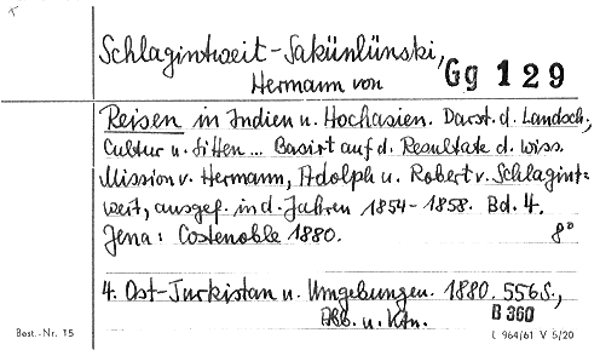 Schlagintweit-Sakünlünski,
Hermann von
Gg 129
Reisen in Indien u. Hochasien. Darst. d. Landsch.,
Cultur u. Sitten ... Basirt auf d. Resultate d. wiss.
Mission v. Hermann, Adolph u. Robert v. Schlagint-
weit, ausgef. in d. Jahren 1854-1858. Bd. 4.
Jena: Costenoble 1880. 8°
4. Ost-Turkistan u. Umgebungen. 1880. 556 S.,
Abb. u. Ktn. B 360
Best.-Nr. 15
L 964/61 V 5/20